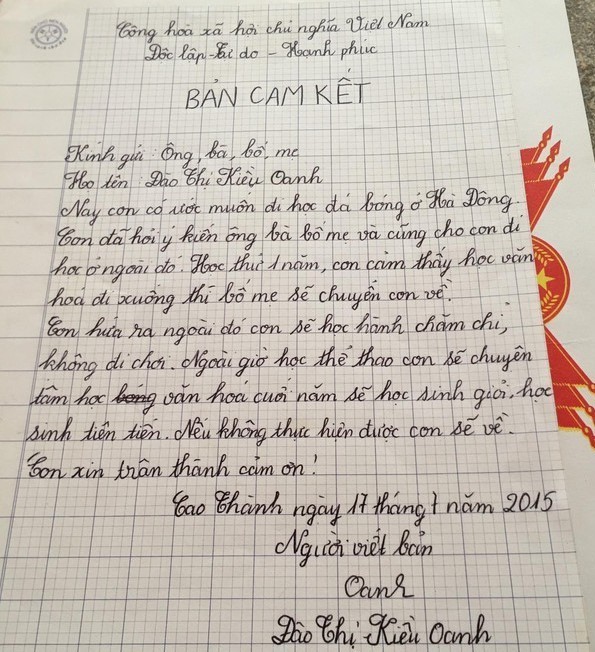 Công hoà xã hội chủ nghĩa Việt Nam
Độc lập - Tự do - Hạnh phúc
BẢN CAM KẾT
Kính gửi: Ông, bà, bố, mẹ
Họ tên: Đào Thị Kiều Oanh
Nay con có ước muốn đi học đá bóng ở Hà Đông.
Con đã hỏi ý kiến ông bà bố mẹ và cũng cho con đi
học ở ngoài đó. Học thử 1 năm, con cảm thấy học văn
hoá đi xuống thì bố mẹ sẽ chuyển con về.
Con hứa ra ngoài đó con sẽ học hành chăm chỉ,
không đi chơi. Ngoài giờ học thể thao con sẽ chuyên
tâm học bóng văn hoá cuối năm sẽ học sinh giỏi, học
sinh tiên tiến. Nếu không thực hiện được con sẽ về.
Con xin trân thành cảm ơn!
Cao Thành ngày 17 tháng 7 năm 2015
Người viết bản
Oanh
Đào Thị Kiều Oanh